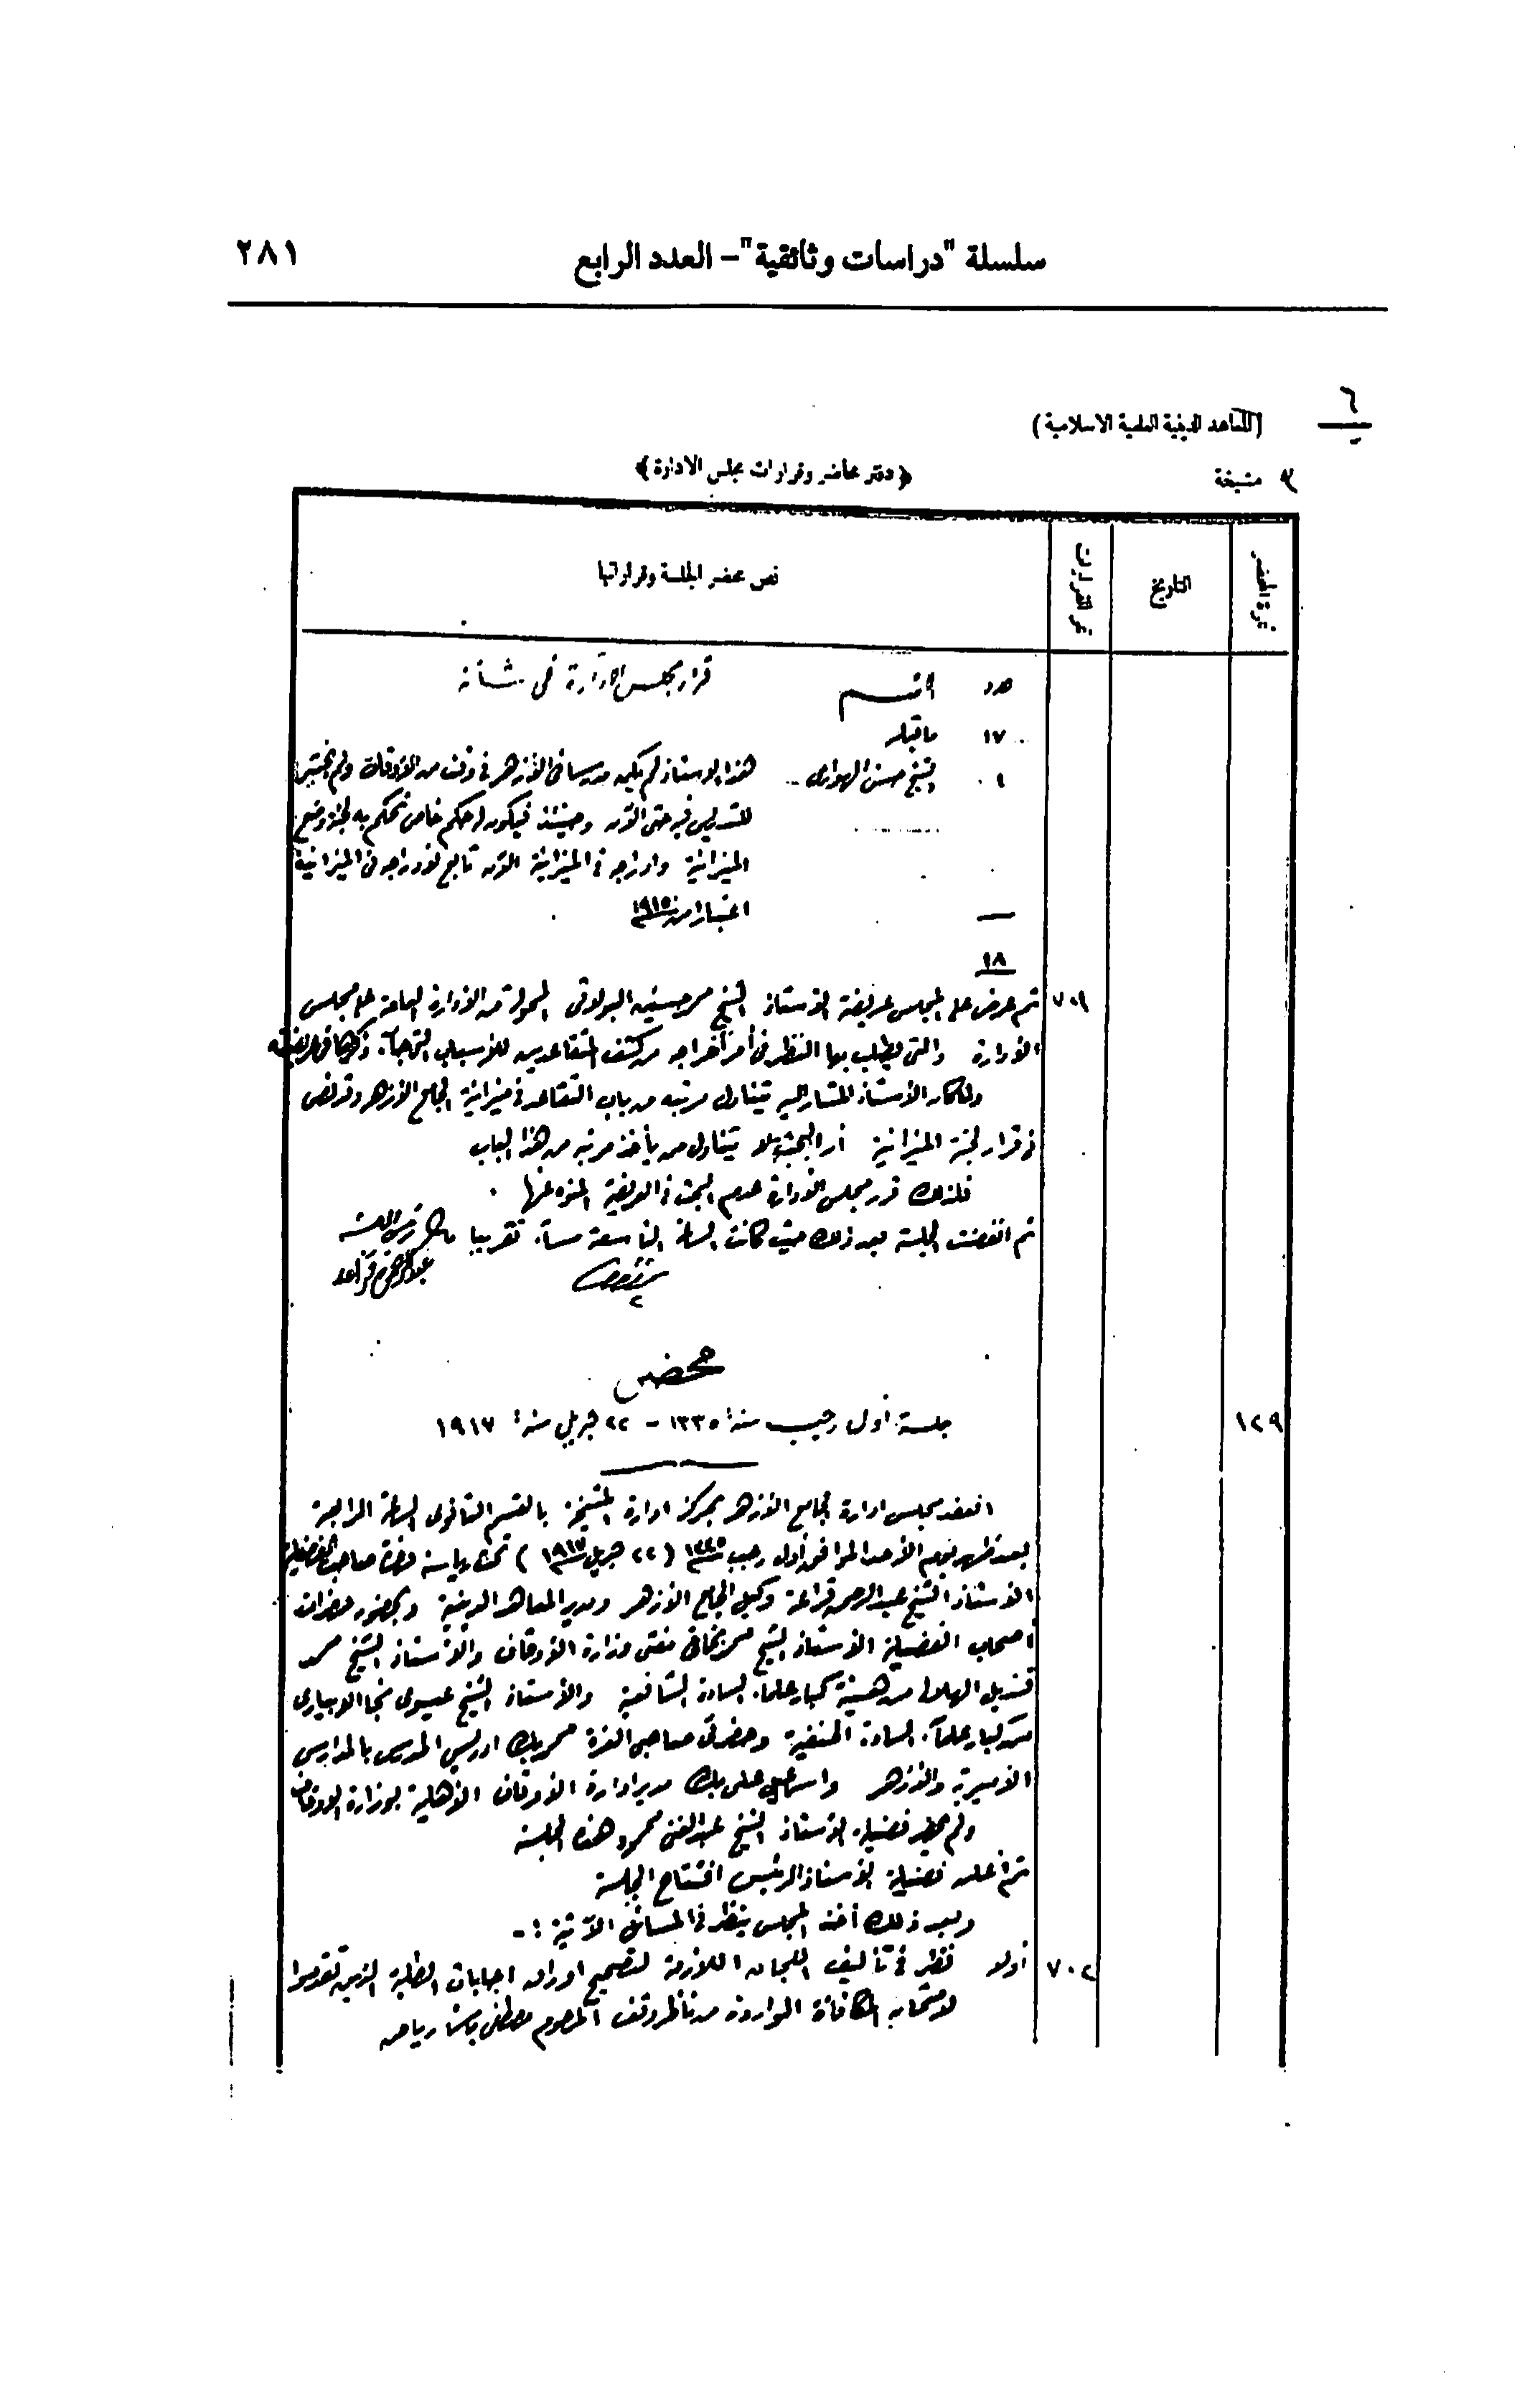 سلسلة "دراسات وثائقية" – العدد الرابع
٢٨١
٦
(المعاهد الدينية العلمية الاسلامية)
مشيخة
﴿ دفتر محاضر وقرارات مجلس الادارة ﴾
نمرة المحضر
التاريخ
نمر القرارات
نص محضر الجلسة وقراراتها
عدد
الاسم
قرار مجلس الادارة فى شأنه
١٧
ماقبله
٠١
الشيخ حسن الهوارى
هذا الاستاذ لم يكن مدرسا فى الأزهر فى وقت من الأوقات ولم يختبر
للتدريس فيه حتى الآن وحينئذ فيكون له حكم خاص تحكم به لجنة وضع
الميزانية وادراجه فى الميزانية الآن تابع لادراجه فى الميزانية
اعتبارا من سنة ١٩١٥
١٨
٧٠١
ثم عرض على المجلس عريضة الأستاذ الشيخ محمد حسنين البولاقى المحولة من الادارة العامة على مجلس
الادارة والتى يطلب بها النظر فى أمر اخراجه من كشف المتقاعدين للأسباب التى جاء ذكرها فى عريضته
ولما كان الأستاذ المشار اليه يتناول مرتبه من باب التقاعد فى ميزانية الجامع الازهر وقد نص
فى قرار لجنة الميزانية أن البحث لا يتناول من يأخذ مرتبه من هذا الباب
فلذلك قرر مجلس الادارة عدم البحث فى العريضة المنوه عنها .
ثم انفضت الجلسة بعد ذلك حيث كانت الساعة التاسعة مساء تقريبا
عبد الرحمن قراعه
محضر
١٢٩
جلسة أول رجب سنة ١٣٣٥ - ٢٢ ابريل سنة ١٩١٧
انعقد مجلس ادارة الجامع الازهر بمركز ادارة المشيخة بالقسم الثانوى الساعة الرابعة
بعد ظهر يوم الأحد الموافق أول رجب سنة ١٣٣٥ (٢٢ ابريل سنة ١٩١٧) تحت رياسة حضرة صاحب الفضيلة
الأستاذ الشيخ عبد الرحمن قراعة وكيل الجامع الأزهر ومدير المعاهد الدينية وبحضور حضرات
أصحاب الفضيلة الأستاذ الشيخ محمد بخاتى مفتى وزارة الأوقاف والأستاذ الشيخ محمد
قنديل الهلالى من هيئة كبار علماء السادة الشافعية والأستاذ الشيخ عيسوى نجا الابيارى
من كبار علماء السادة الحنفية وحضرتى صاحبى العزة محمد بك ادريس المدرس بالمدارس
الأميرية والأزهر واسماعيل على بك مدير ادارة الأوقاف الأهلية بوزارة الاوقاف
ولم يحضر فضيلة الأستاذ الشيخ عبد الغنى محمود هذه الجلسة
ثم أعلن فضيلة الأستاذ الرئيس افتتاح الجلسة
وبعد ذلك أخذ المجلس ينظر فى المسائل الآتية :-
٧٠٢
أولا نظر فى تأليف اللجان اللازمة لتصحيح اوراق اجابات الطلبة الذين تقدموا
لامتحان المكافأة الواردة من ناظر وقف المرحوم مصطفى باشا رياض